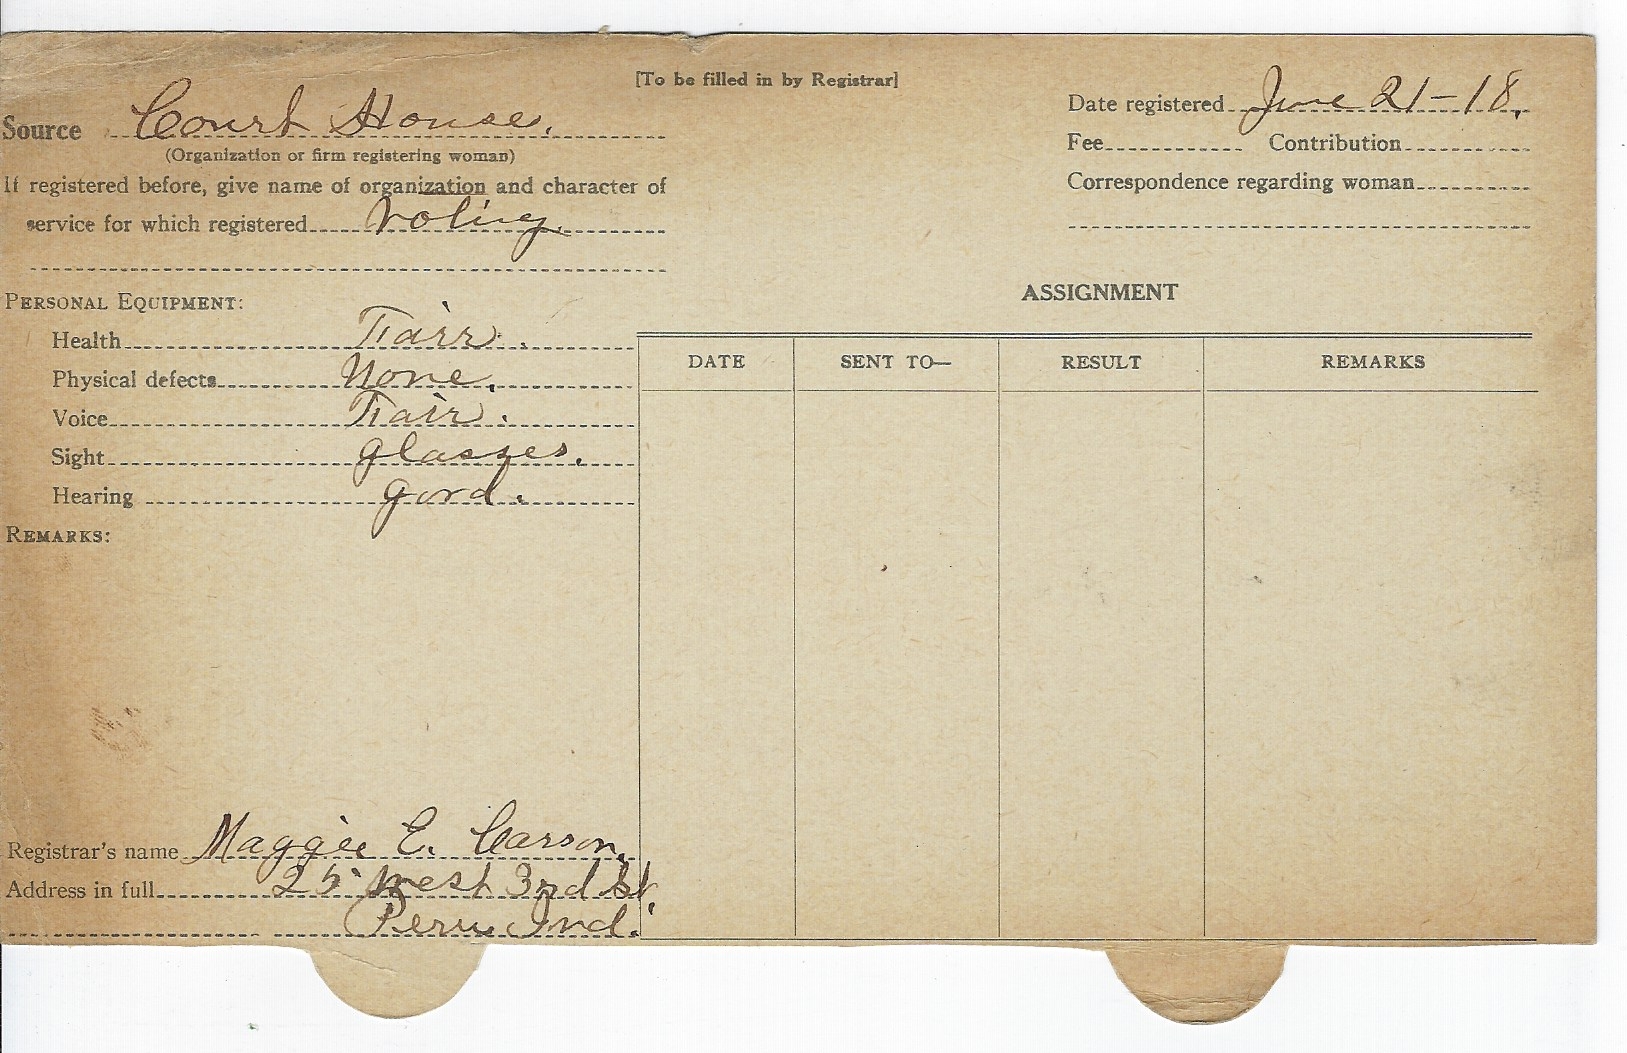 [To be filled in by Registrar]
Source Court House.
(Organization or firm registering woman)
If registered before, give name of organization and character of
service for which registered Voting.
Date registered June 21-18.
Fee Contribution
Correspondence regarding woman
PERSONAL EQUIPMENT:
Health Fair.
Physical defects None.
Voice Fair.
Sight glasses.
Hearing good.
REMARKS:
ASSIGNMENT
DATE SENT TO— RESULT REMARKS
Registrar's name Maggie E. Carson.
Address in full 25 West 3rd St.
Peru Ind.